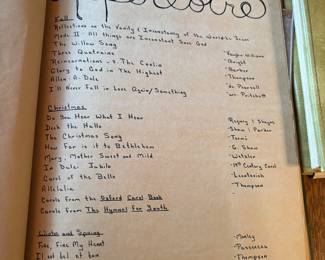 Repertoire
Fall
Reflections on the Vanity & Inconstancy of the World - Dr. Dean
Mode II - All things are Inconstant Save God
The Willow Song - Vaughn-Williams
Three Quatrains - Wright
Reincarnations - 3. The Coolin - Barber
Glory to God in The Highest - Thompson
Allen - A - Dale - de Pearsall
I'll Never Fall in Love Again/Something - arr. Pritchett
Christmas
Do You Hear What I Hear - Regney / Shayne
Deck the Halls - Shaw / Parker
The Christmas Song - Torme
How Far is it to Bethlehem - G. Shaw
Mary, Mother Sweet and Mild - Wetzler
In Dulci Jubilo - 14th Century Carol
Carol of the Bells - Leontovich
Alleluia - Thompson
Carols from the Oxford Carol Book -
Carols from The Hymnal For Youth
Winter and Spring
Fire, Fire My Heart - Morley
Il est bel et bon - Passereau
- Thompson